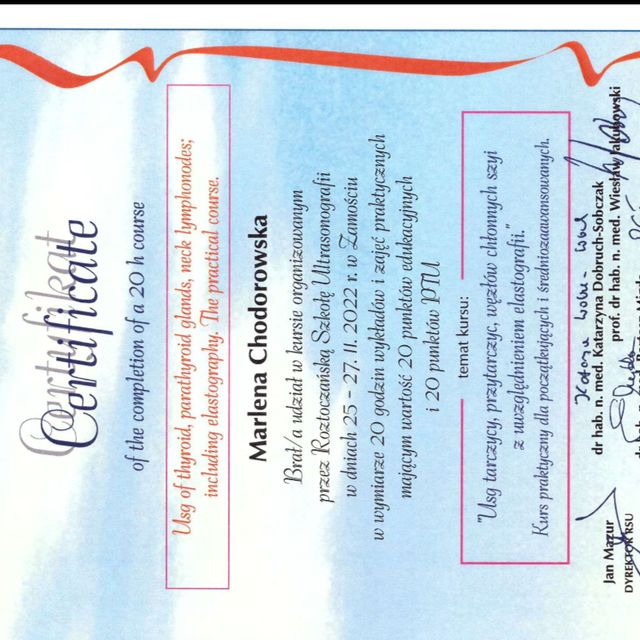 Certyfikat
Certificate
of the completion of a 20 h course
Usg of thyroid, parathyroid glands, neck lymphonodes;
including elastography. The practical course.
Marlena Chodorowska
Brał/a udział w kursie organizowanym
przez Roztoczańską Szkołę Ultrasonografii
w dniach 25 - 27. II. 2022 r. w Zamościu
w wymiarze 20 godzin wykładów i zajęć praktycznych
mającym wartość 20 punktów edukacyjnych
i 20 punktów PTU
temat kursu:
"Usg tarczycy, przytarczyc, węzłów chłonnych szyi
z uwzględnieniem elastografii."
Kurs praktyczny dla początkujących i średniozaawansowanych.
Jan Mazur
DYREKTOR RSU
dr hab. n. med. Katarzyna Dobruch-Sobczak
prof. dr hab. n. med. Wiesław Jakubowski